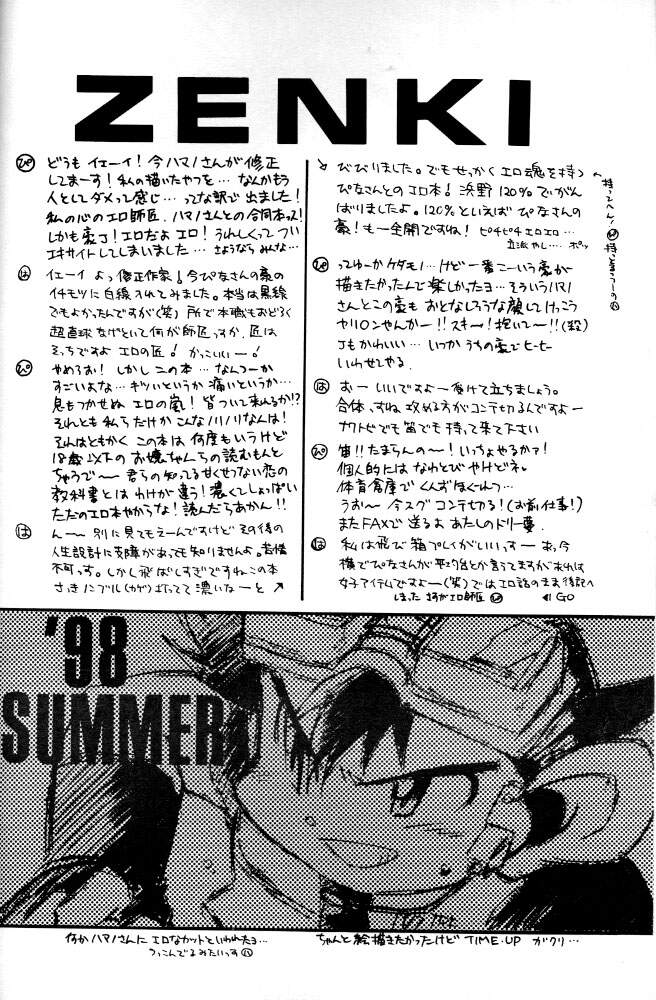 ZENKI
ぴ どうも イェーイ!今ハマノさんが修正
してまーす!私の描いたやつを…なんかもう
人としてダメって感じ…ってな訳で出ました!
私の心のエロ師匠.ハマノさんとの合同本っ!
しかも豪J!エロだよエロ!うれしくってつい
エキサイトしてしまいました…さようなら みんな…
は イェーイ よっ修正作家!今ぴなさんの豪の
イチモツに白線入れてみました。本当は黒線
でもよかったんですが(笑)所で本職もおどろく
超直球なげといて何が師匠っすか.匠は
そっちですよ エロの匠!かっこいいー!
ぴ やめろお!しかしこの本…なんつーか
すごいよな…キツいというか痛いというか…
息もつかせぬエロの嵐!皆ついて来れるか!?
それとも私らだけかこんなノリノリなんは!
それはともかく この本は何度もいうけど
18歳以下のお嬢ちゃんらの読むもんと
ちゃうで〜 君らの知ってる甘くせつない恋の
教科書とはわけが違う!濃くてしょっぱい
ただのエロ本やからな!読んだらあかん!!
は ん〜 別に見てもえーんですけどその後の
人生設計に支障があっても知りませんよ。苦情
不可っす。しかし飛ばしすぎですねこの本
さっきノンブル(カゲ)打ってて濃いなーと↗
↘びびりました。でもせっかくエロ魂を持つ
ぴなさんとのエロ本!浜野120%でがん
ばりましたよ。120%といえばぴなさんの
豪!も一全開ですね!ピチピチエロエロ…
立派やし… ポッ
持ってへん!ぴ 持っとるっつーの は
ぴ ってゆーかケダモノ…けど一番こーいう豪が
描きたかったんで楽しかったヨ…そういうハマノ
さんとこの豪も おとなしそうな顔してけっこう
ヤリチンやんかー!!スキー!抱いてー!!(殺)
Jもかわいい…いつかうちの豪でヒーヒー
いわせてやる.
は おー いいですよー 受けて立ちましょう。
合体っすね 攻める方がコンテ切るんですよー
ナワトビでも笛でも持って来て下さい
ぴ 笛!!たまらんの〜!いっちょやるかァ!
個人的にはなわとびやけどネ。
体育倉庫でくんずほぐれつ…
うお〜今スグコンテ切る!(お前仕事!)
またFAXで送るよ あたしのドリー夢.
は 私は飛び箱プレイがいいっすー あっ今
横でぴなさんが平均台とか言ってますがあれは
女子アイテムですよー(笑)ではエロ話のまま後記へ
しまった さすがエロ師匠 ぴ GO
'98
SUMMER
何かハマノさんに エロなカットといわれたヨ…
つっこんでるみたいっす は
ちゃんと絵描きたかったけど TIME・UP ガクリ…